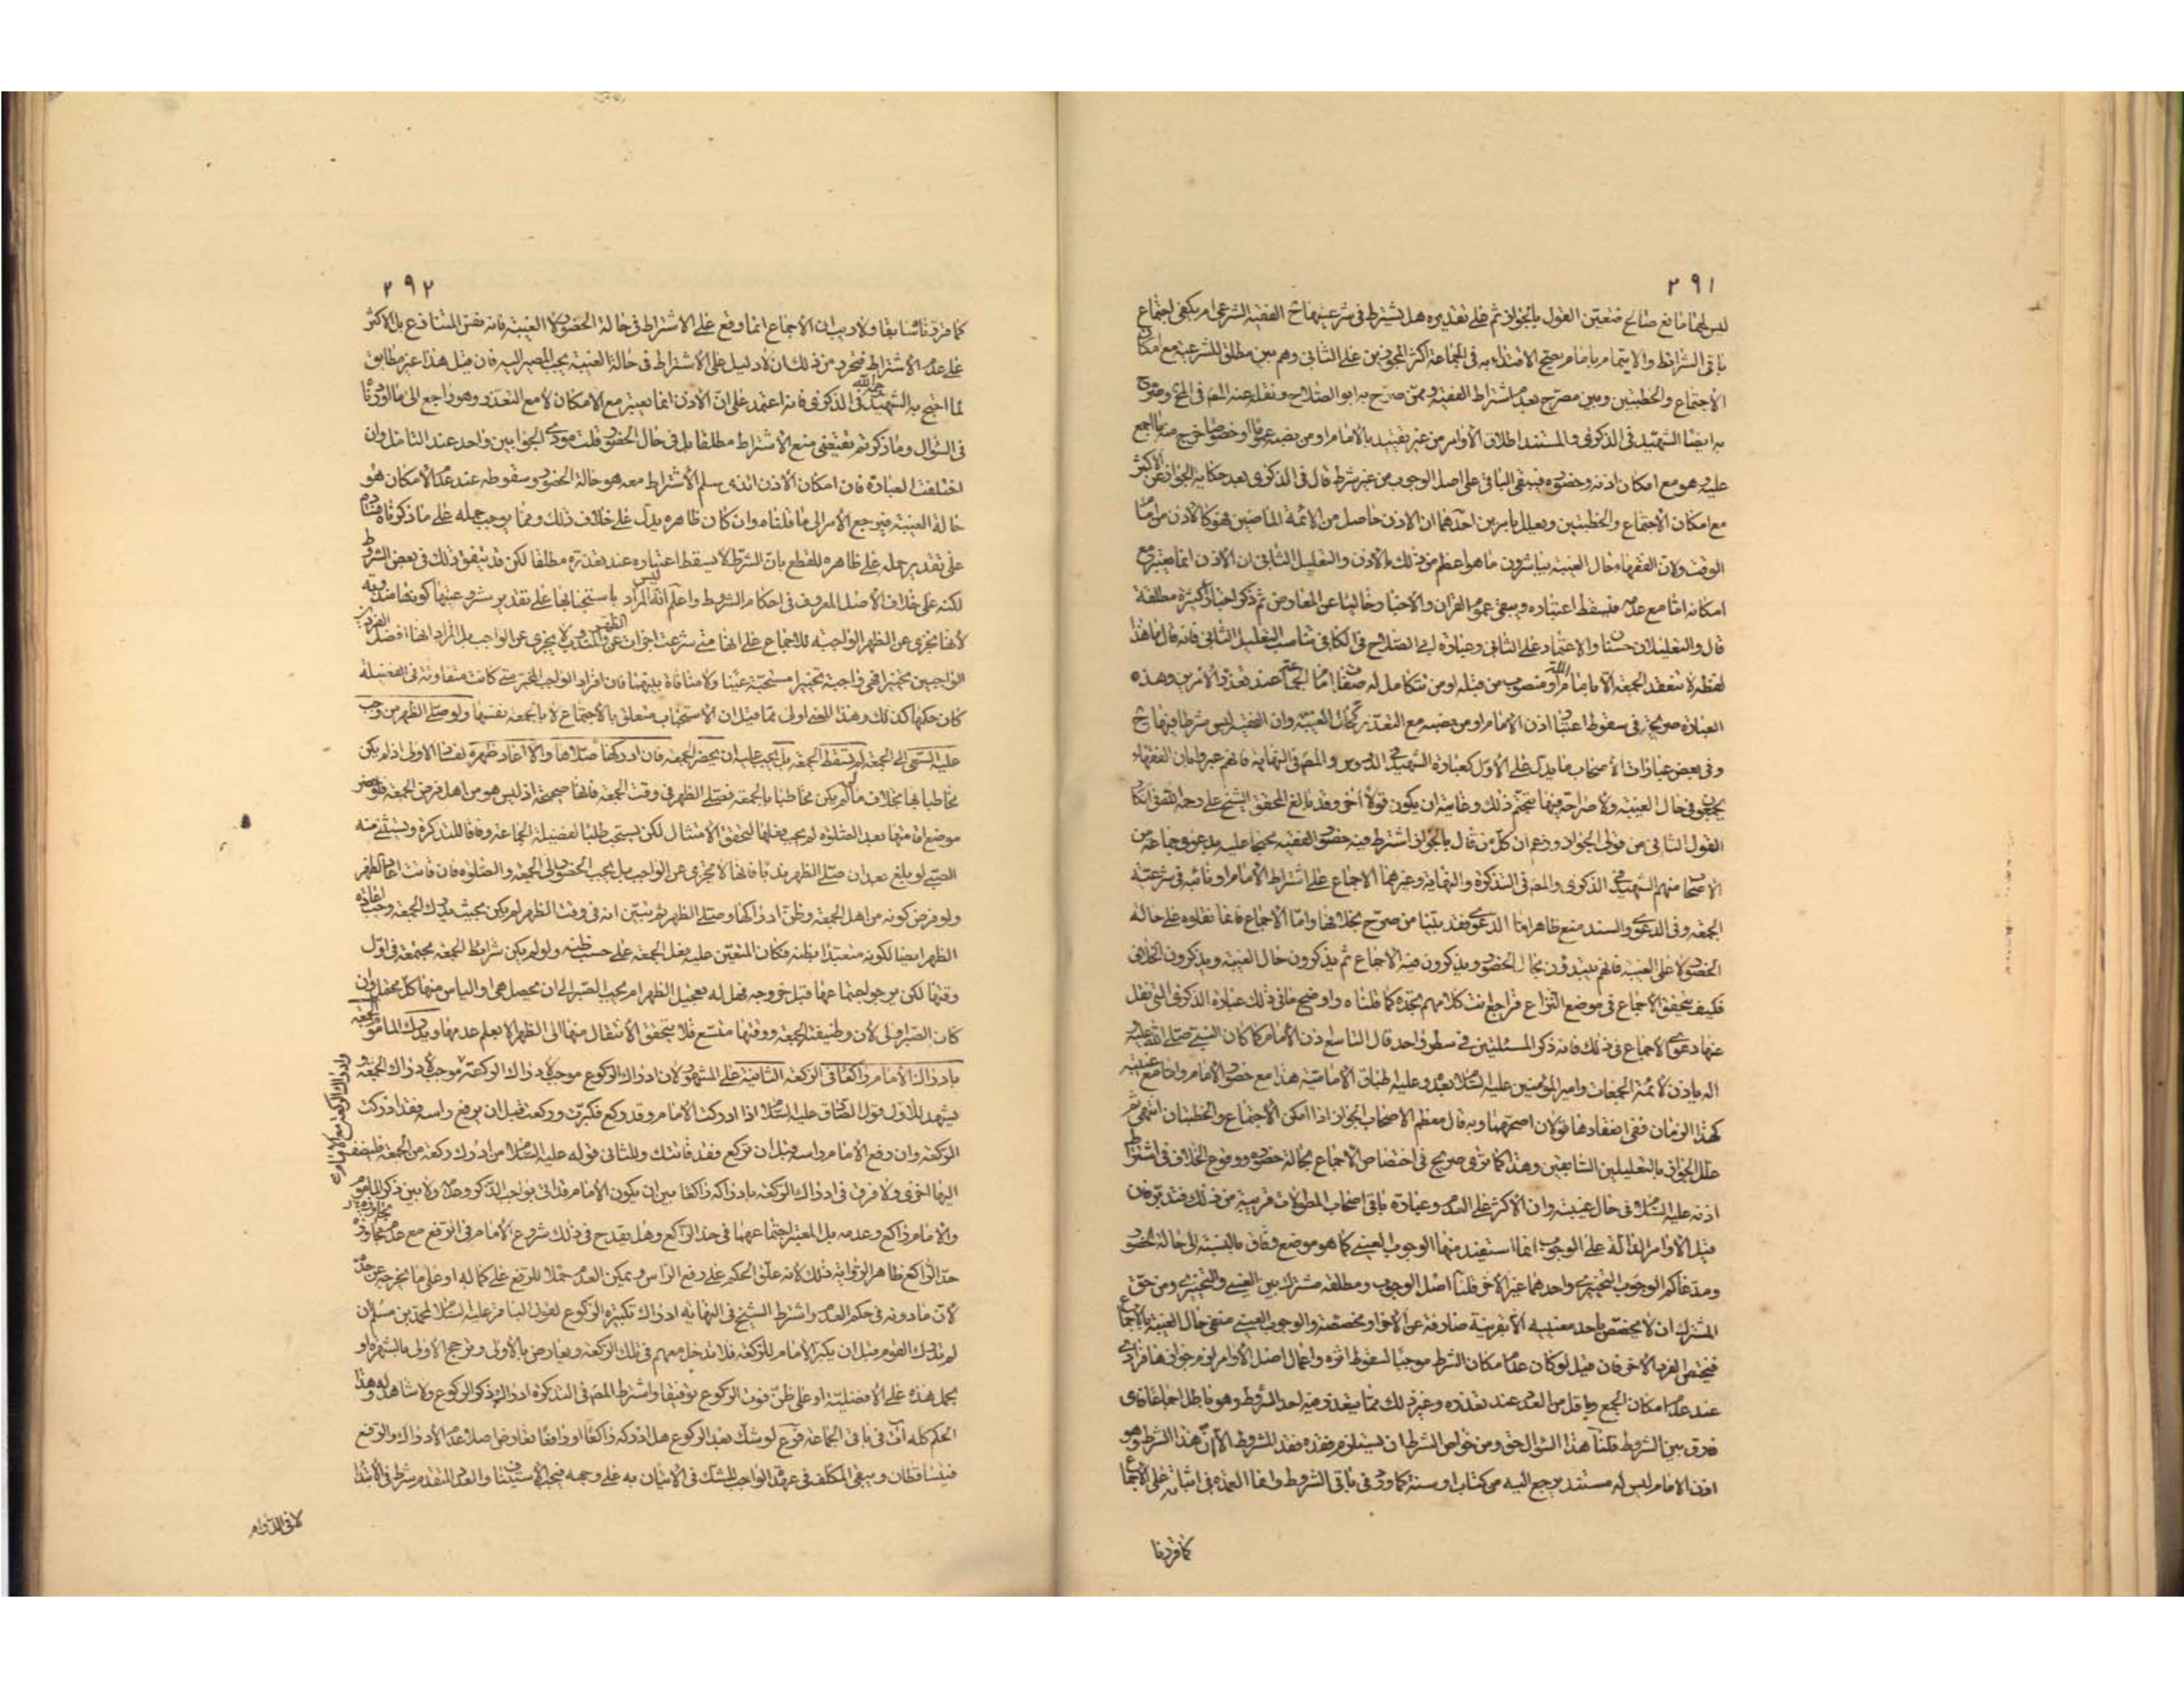 ٢٩١
ليس لهما مانع صالح فتعين القول بالجواز ثم على تقديره هل يشترط فى شرعيتها ح الفقيه الشرعى ام يكفى اجتماع
باقى الشرائط والايتمام بامام يصح الاقتداء به فى الجماعة اكثر المجوزين على الثانى وهم بين مطلق للشرعية مع امكان
الاجتماع والخطبتين وبين مصرح بعدم اشتراط الفقيه وممن صرح به ابو الصلاح ونقله عنه المص فى المخ وصرح
به ايضا الشهيد فى الذكرى والمستند اطلاق الاوامر من غير تقييد بالامام او من نصبه عموما او خصوصا خرج منه ما اجمع
عليه وهو مع امكان اذنه وحضوره فيبقى الباقى على اصل الوجوب من غير شرط قال فى الذكرى بعد حكاية الجواز عن الاكثر
مع امكان الاجتماع والخطبتين ويعلل بامرين احدهما ان الاذن حاصل من الائمة الماضين فهو كالاذن من امام
الوقت ولان الفقهاء حال الغيبة يباشرون ما هو اعظم من ذلك بالاذن والتعليل الثانى ان الاذن انما يعتبر مع
امكانه اما مع عدمه فيسقط اعتباره ويبقى عموم القران والاخبار خاليا عن المعارض ثم ذكر اخبارا كثيرة مطلقة
قال والتعليلان حسنان والاعتماد على الثانى وعبارة ابى الصلاح فى الكافى تناسب التعليل الثانى فانه قال ما هذا
لفظه لا تنعقد الجمعة الا بامام الملة او منصوب من قبله او من تتكامل له صفات امام الجماعة عند تعذر الامرين وهذه
العبارة صريحة فى سقوط اعتبار اذن الامام او من نصبه مع التعذر كحال الغيبة وان الفقيه ليس شرطا فيها ح
وفى بعض عبارات الاصحاب ما يدل على الاول كعبارة الشهيد فى الدروس والمص فى النهاية فانهم عبروا بان الفقهاء
يجمعون فى حال الغيبة ولا صراحة فيها بتحتم ذلك وغايته ان يكون قولا اخر وقد بالغ المحقق الشيخ على رحمه الله فى انكار
القول الثانى من قولى الجواز وزعم ان كل من قال بالجواز اشترط فيه حضور الفقيه محتجا عليه بدعوى جماعة من
الاصحاب منهم الشهيد فى الذكرى والمص فى التذكرة والنهاية وغيرهما الاجماع على اشتراط الامام او نائبه فى شرعية
الجمعة وفى الدعوى والسند منع ظاهر اما الدعوى فقد بينا من صرح بخلافها واما الاجماع فانما نقلوه على حالة
الحضور لا على الغيبة فانهم يبتدؤن بحال الحضور ويذكرون فيه الاجماع ثم يذكرون حال الغيبة ويذكرون الخلاف
فكيف يتحقق الاجماع فى موضع النزاع فراجع انت كلامهم تجده كما قلناه واوضح ما فى ذلك عبارة الذكرى التى نقل
عنها دعوى الاجماع فى ذلك فانه ذكر المسئلتين فى سطر واحد قال التاسع اذن الامام كما كان النبى صلى الله عليه
واله ياذن لائمة الجمعات وامير المؤمنين عليه السلام بعده وعليه اطباق الامامية هذا مع حضور الامام واما مع غيبته
كهذا الزمان ففى انعقادها قولان اصحهما وبه قال معظم الاصحاب الجواز اذا امكن الاجتماع والخطبتان انتهى ثم
علل الجواز بالتعليلين السابقين وهذا كما ترى صريح فى اختصاص الاجماع بحالة حضوره ووقوع الخلاف فى اشتراط
اذنه عليه السلام فى حال غيبته وان الاكثر على العدم وعبارة باقى اصحاب المطولات قريبة من ذلك فتدبر فان
قيل الاوامر الدالة على الوجوب انما استفيد منها الوجوب العينى كما هو موضع وفاق بالنسبة الى حالة الحضور
ومدعاكم الوجوب التخييرى واحدهما غير الاخر قلنا اصل الوجوب ومطلقه مشترك بين العينى والتخييرى ومن حق
المشترك ان لا يخصص باحد معنييه الا بقرينة صارفة عن الاخر او مخصصة والوجوب العينى منتفى حال الغيبة بالاجماع
فيختص الفرد الاخر فان قيل لو كان عدم امكان الشرط موجبا لسقوط اثره واعمال اصل الاوامر لزم جوازها فرادى
عند عدم امكان الجمع وباقل من العدد عند تعذره وغير ذلك مما يتعذر فيه احد الشروط وهو باطل اجماعا فاى
فرق بين الشروط قلنا هذا السؤال حق ومن خواص الشرط ان يستلزم فقده فقد المشروط الا ان هذا الشرط وهو
اذن الامام ليس له مستند يرجع اليه من كتاب او سنة كما ورد فى باقى الشروط وانما العمدة فى اثباته على الاجماع
كما قررنا
٢٩٢
كما قررناه سابقا ولا ريب ان الاجماع انما وقع على الاشتراط فى حالة الحضور لا الغيبة فانه نفس المتنازع بل الاكثر
على عدم الاشتراط فتحرر من ذلك ان لا دليل على الاشتراط فى حالة الغيبة يجب المصير اليه فان قيل هذا غير مطابق
لما احتج به الشهيد رحمه الله فى الذكرى فانه اعتمد على ان الاذن انما يعتبر مع الامكان لا مع التعذر وهو راجع الى ما اوردناه
فى السؤال وما ذكرتم يقتضى منع الاشتراط مطلقا بل فى حال الحضور قلت مودى الجوابين واحد عند التامل وان
اختلفت العبارة فان امكان الاذن الذى سلم الاشتراط معه هو حالة الحضور وسقوطه عند عدم الامكان هو
حالة الغيبة فيرجع الامر الى ما قلناه وان كان ظاهره يدل على خلاف ذلك ومما يوجب حمله على ما ذكرناه فساده
على تقدير حمله على ظاهره للقطع بان الشرط لا يسقط اعتباره عند تعذره مطلقا لكن قد يتفق ذلك فى بعض الشروط
لكنه على خلاف الاصل المعروف فى احكام الشروط واعلم انه ليس المراد باستحبابها على تقدير شرعيتها كونها مندوبة
لانها تجزى عن الظهر الواجبة للاجماع على انها متى شرعت اجزات عن الظهر والمندوب لا يجزى عن الواجب بل المراد انها افضل الفردين
الواجبين تخييرا فهى واجبة تخييرا مستحبة عينا ولا منافاة بينهما فان افراد الواجب المخير متى كانت متفاوتة فى الفضيلة
كان حكمها كذلك وهذا المعنى اولى مما قيل ان الاستحباب متعلق بالاجتماع لا بالجمعة نفسها ولو صلى الظهر من وجب
عليه السعى الى الجمعة لم تسقط الجمعة بل يجب عليه ان يحضر الجمعة فان ادركها صلاها والا اعاد ظهره لفساد الاولى اذ لم يكن
مخاطبا بها بخلاف ما لو لم يكن مخاطبا بالجمعة فصلى الظهر فى وقت الجمعة فانها صحيحة اذ ليس هو من اهل فرض الجمعة فلو حضر
موضع اقامتها بعد الصلوة لم يجب فعلها لتحقق الامتثال لكن يستحب طلبا لفضيلة الجماعة وفاقا للتذكرة ويستثنى منه
الصبى لو بلغ بعد ان صلى الظهر ندبا فانها لا تجزى عن الواجب بل يجب الحضور الى الجمعة والصلوة فان فاتت اعاد الظهر
ولو فرض كونه من اهل الجمعة وظن ادراكها وصلى الظهر ثم تبين انه فى وقت الظهر لم يكن بحيث يدرك الجمعة وجب اعادة
الظهر ايضا لكونه متعبدا بظنه فكان المتعين عليه فعل الجمعة على حسب ظنه ولو لم يكن شرائط الجمعة مجتمعة فى اول
وقتها لكن يرجو اجتماعها قبل خروجه فهل له تعجيل الظهر ام يجب الصبر الى ان تحصل هى او الياس منها كل محتمل وان
كان الصبر اولى لان وظيفته الجمعة ووقتها متسع فلا يتحقق الانتقال منها الى الظهر الا بعلم عدمها ويدرك الماموم الجمعة
بادراك الامام راكعا فى الركعة الثانية على المشهور لان ادراك الركوع موجب لادراك الركعة وموجب لادراك الجمعة و
ادراك الركعة مع الامام
يشهد للاول قول الصادق عليه السلام اذا ادركت الامام وقد ركع فكبرت وركعت قبل ان يرفع راسه فقد ادركت
الركعة وان رفع الامام راسه قبل ان تركع فقد فاتتك وللثانى قوله عليه السلام من ادرك ركعة من الجمعة فليضف
اليها اخرى ولا فرق فى ادراك الركعة بادراكه راكعا بين ان يكون الامام قد اتى بواجب الذكر وعدمه ولا بين ذكر الماموم
والامام راكع وعدمه بل المعتبر اجتماعهما فى حد الراكع وهل يقدح فى ذلك شروع الامام فى الرفع مع عدم مجاوزة
حد الراكع ظاهر الرواية ذلك لانه علق الحكم على رفع الراس ويمكن العدم حملا للرفع على كماله او على ما يخرج عن حده
لان ما دونه فى حكم العدم واشترط الشيخ فى النهاية ادراك تكبيرة الركوع لقول الباقر عليه السلام لمحمد بن مسلم ان
لم تدرك القوم قبل ان يكبر الامام للركعة فلا تدخل معهم فى تلك الركعة ويعارض بالاولى وترجح الاولى بالشهرة او
يحمل هذه على الافضلية او على ظن فوت الركوع توفيقا واشترط المص فى التذكرة ادراك ذكر الركوع ولا شاهد له وهذا
الحكم كله ات فى باقى الجماعة فرع لو شك بعد الركوع هل ادركه راكعا او رافعا تعارض اصلا عدم الادراك والرفع
فيتساقطان ويبقى المكلف فى عهدة الواجب للشك فى الاتيان به على وجهه فيجب الاستيناف والعدد المتقدم شرط فى الابتداء
لا فى الدوام